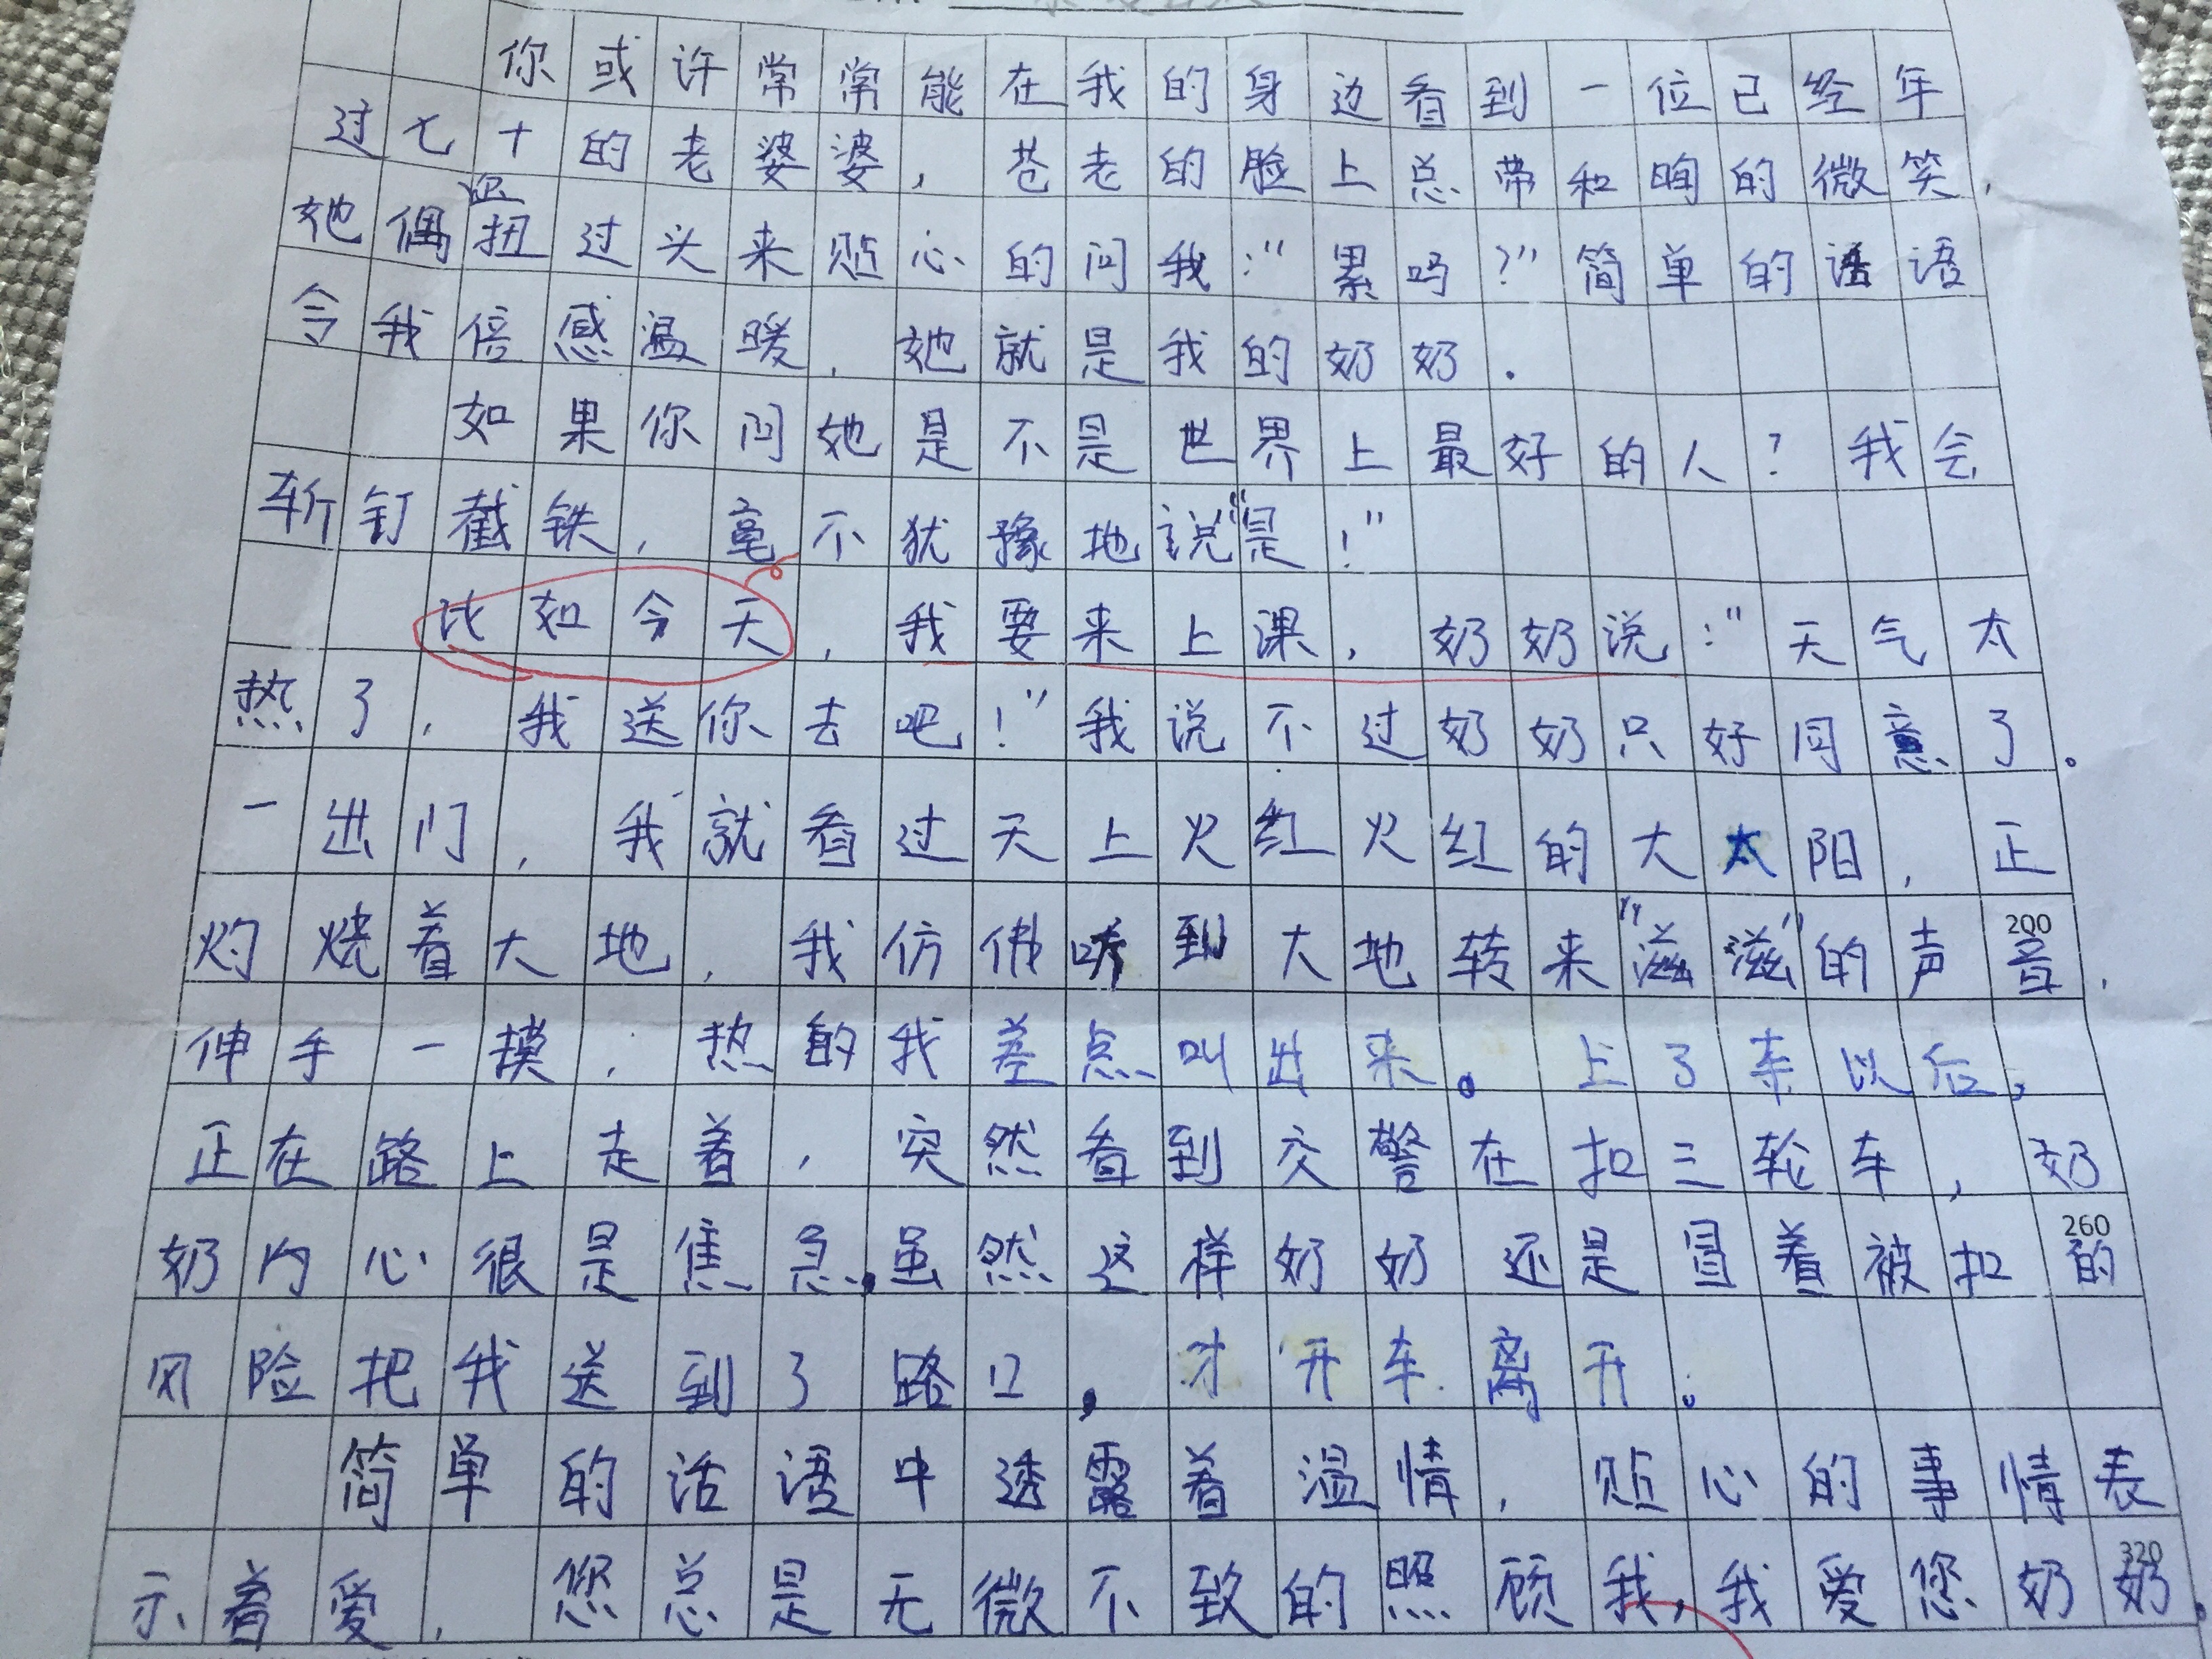 你或许常常能在我的身边看到一位已经年
过七十的老婆婆，苍老的脸上总带和晌的微笑，
她偶还扭过头来贴心的问我："累吗？"简单的话语
令我倍感温暖，她就是我的奶奶．
如果你问她是不是世界上最好的人？我会
斩钉截铁，毫不犹豫地说"是！"
比如今天，我要来上课，奶奶说："天气太
热了，我送你去吧！"我说不过奶奶只好同意了。
一出门，我就看过天上火红火红的大太阳，正
灼烧着大地，我仿佛听到大地转来"滋滋"的声音，
200
伸手一摸，热的我差点叫出来。上了车以后，
正在路上走着，突然看到交警在扣三轮车，奶
奶内心很是焦急，虽然这样奶奶还是冒着被扣的
260
风险把我送到了路口，才开车离开。
简单的话语中透露着温情，贴心的事情表
示着爱，您总是无微不致的照顾我，我爱您奶奶。
320